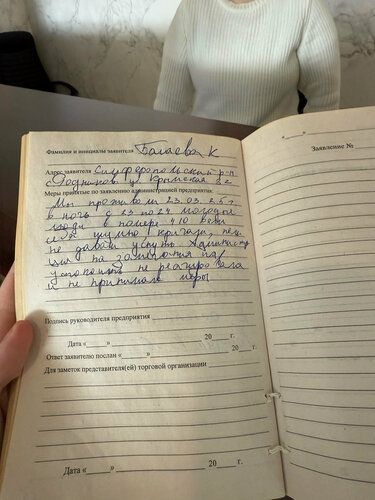 Фамилия и инициалы заявителя Багаева К
Адрес заявителя Симферопольский р-н
с. Родниково ул Крымская 82
Меры принятые по заявлению администрацией предприятия:
Мы проживали 23.03.25 г.
в ночь с 23 по 24 молодые
люди в номере 410 вели
себя шумно кричали, пели
не давали уснуть. Администра
ция на замечания
успокоить не реагировала
и не принимала меры
Подпись руководителя предприятия
Дата «____» ____ 20__ г.
Ответ заявителю послан «____» ____ 20__ г.
Для заметок представителя(ей) торговой организации
Дата «____» ____ 20__ г.
«____»
Заявление №